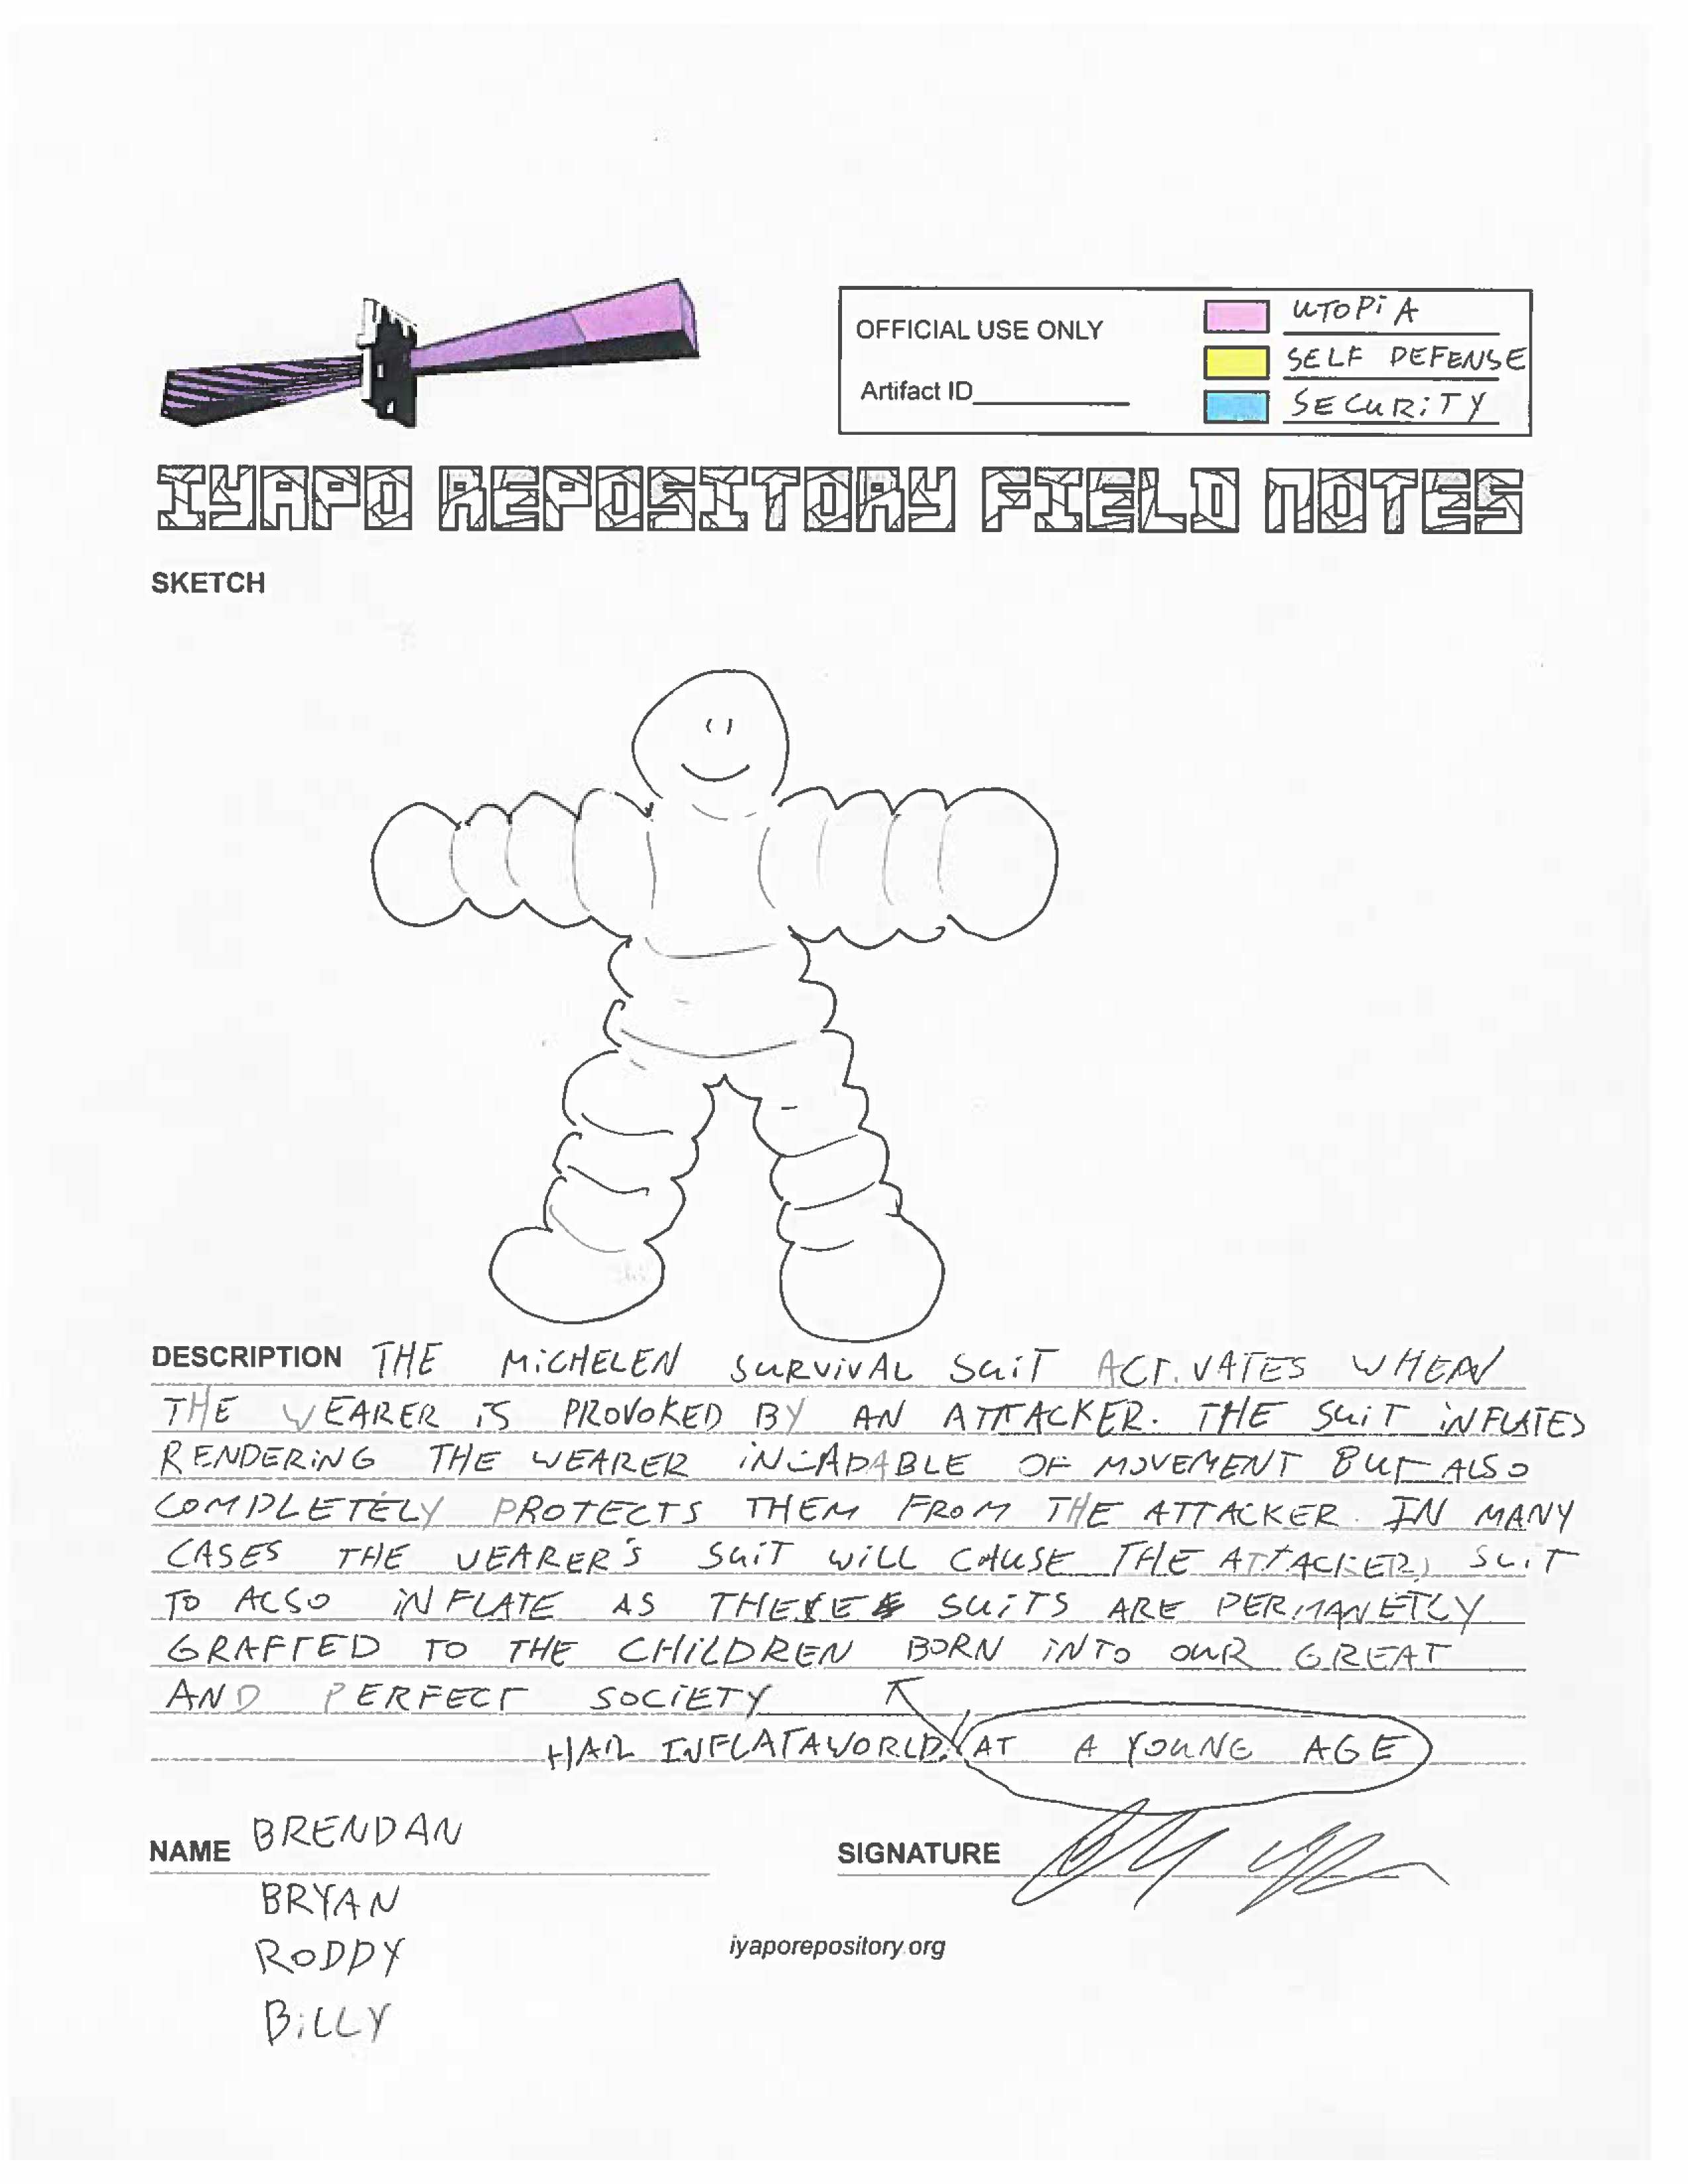 OFFICIAL USE ONLY
Artifact ID
UTOPIA
SELF DEFENSE
SECURITY
IYAPO REPOSITORY FIELD NOTES
SKETCH
DESCRIPTION THE MICHELEN SURVIVAL SUIT ACTIVATES WHEN
THE WEARER IS PROVOKED BY AN ATTACKER. THE SUIT INFLATES
RENDERING THE WEARER INCAPABLE OF MOVEMENT BUT ALSO
COMPLETELY PROTECTS THEM FROM THE ATTACKER. IN MANY
CASES THE WEARER'S SUIT WILL CAUSE THE ATTACKER, SUIT
TO ALSO INFLATE AS THESE SUITS ARE PERMANETLY
GRAFTED TO THE CHILDREN BORN INTO OUR GREAT
AND PERFECT SOCIETY
HAIL INFLATAWORLD. AT A YOUNG AGE
NAME BRENDAN
BRYAN
RODDY
BILLY
SIGNATURE
iyaporepository.org